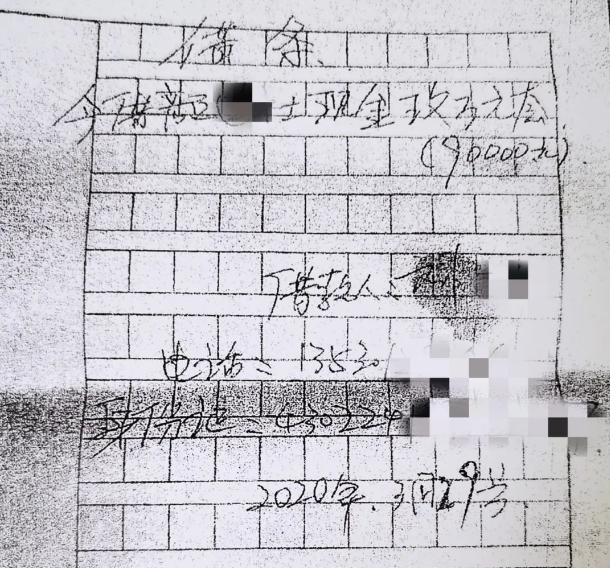 借条
今借到 士现金玖万元整
(90000元)
借款人:
电话: 13530
身份证: 430224
2020年.3月29号